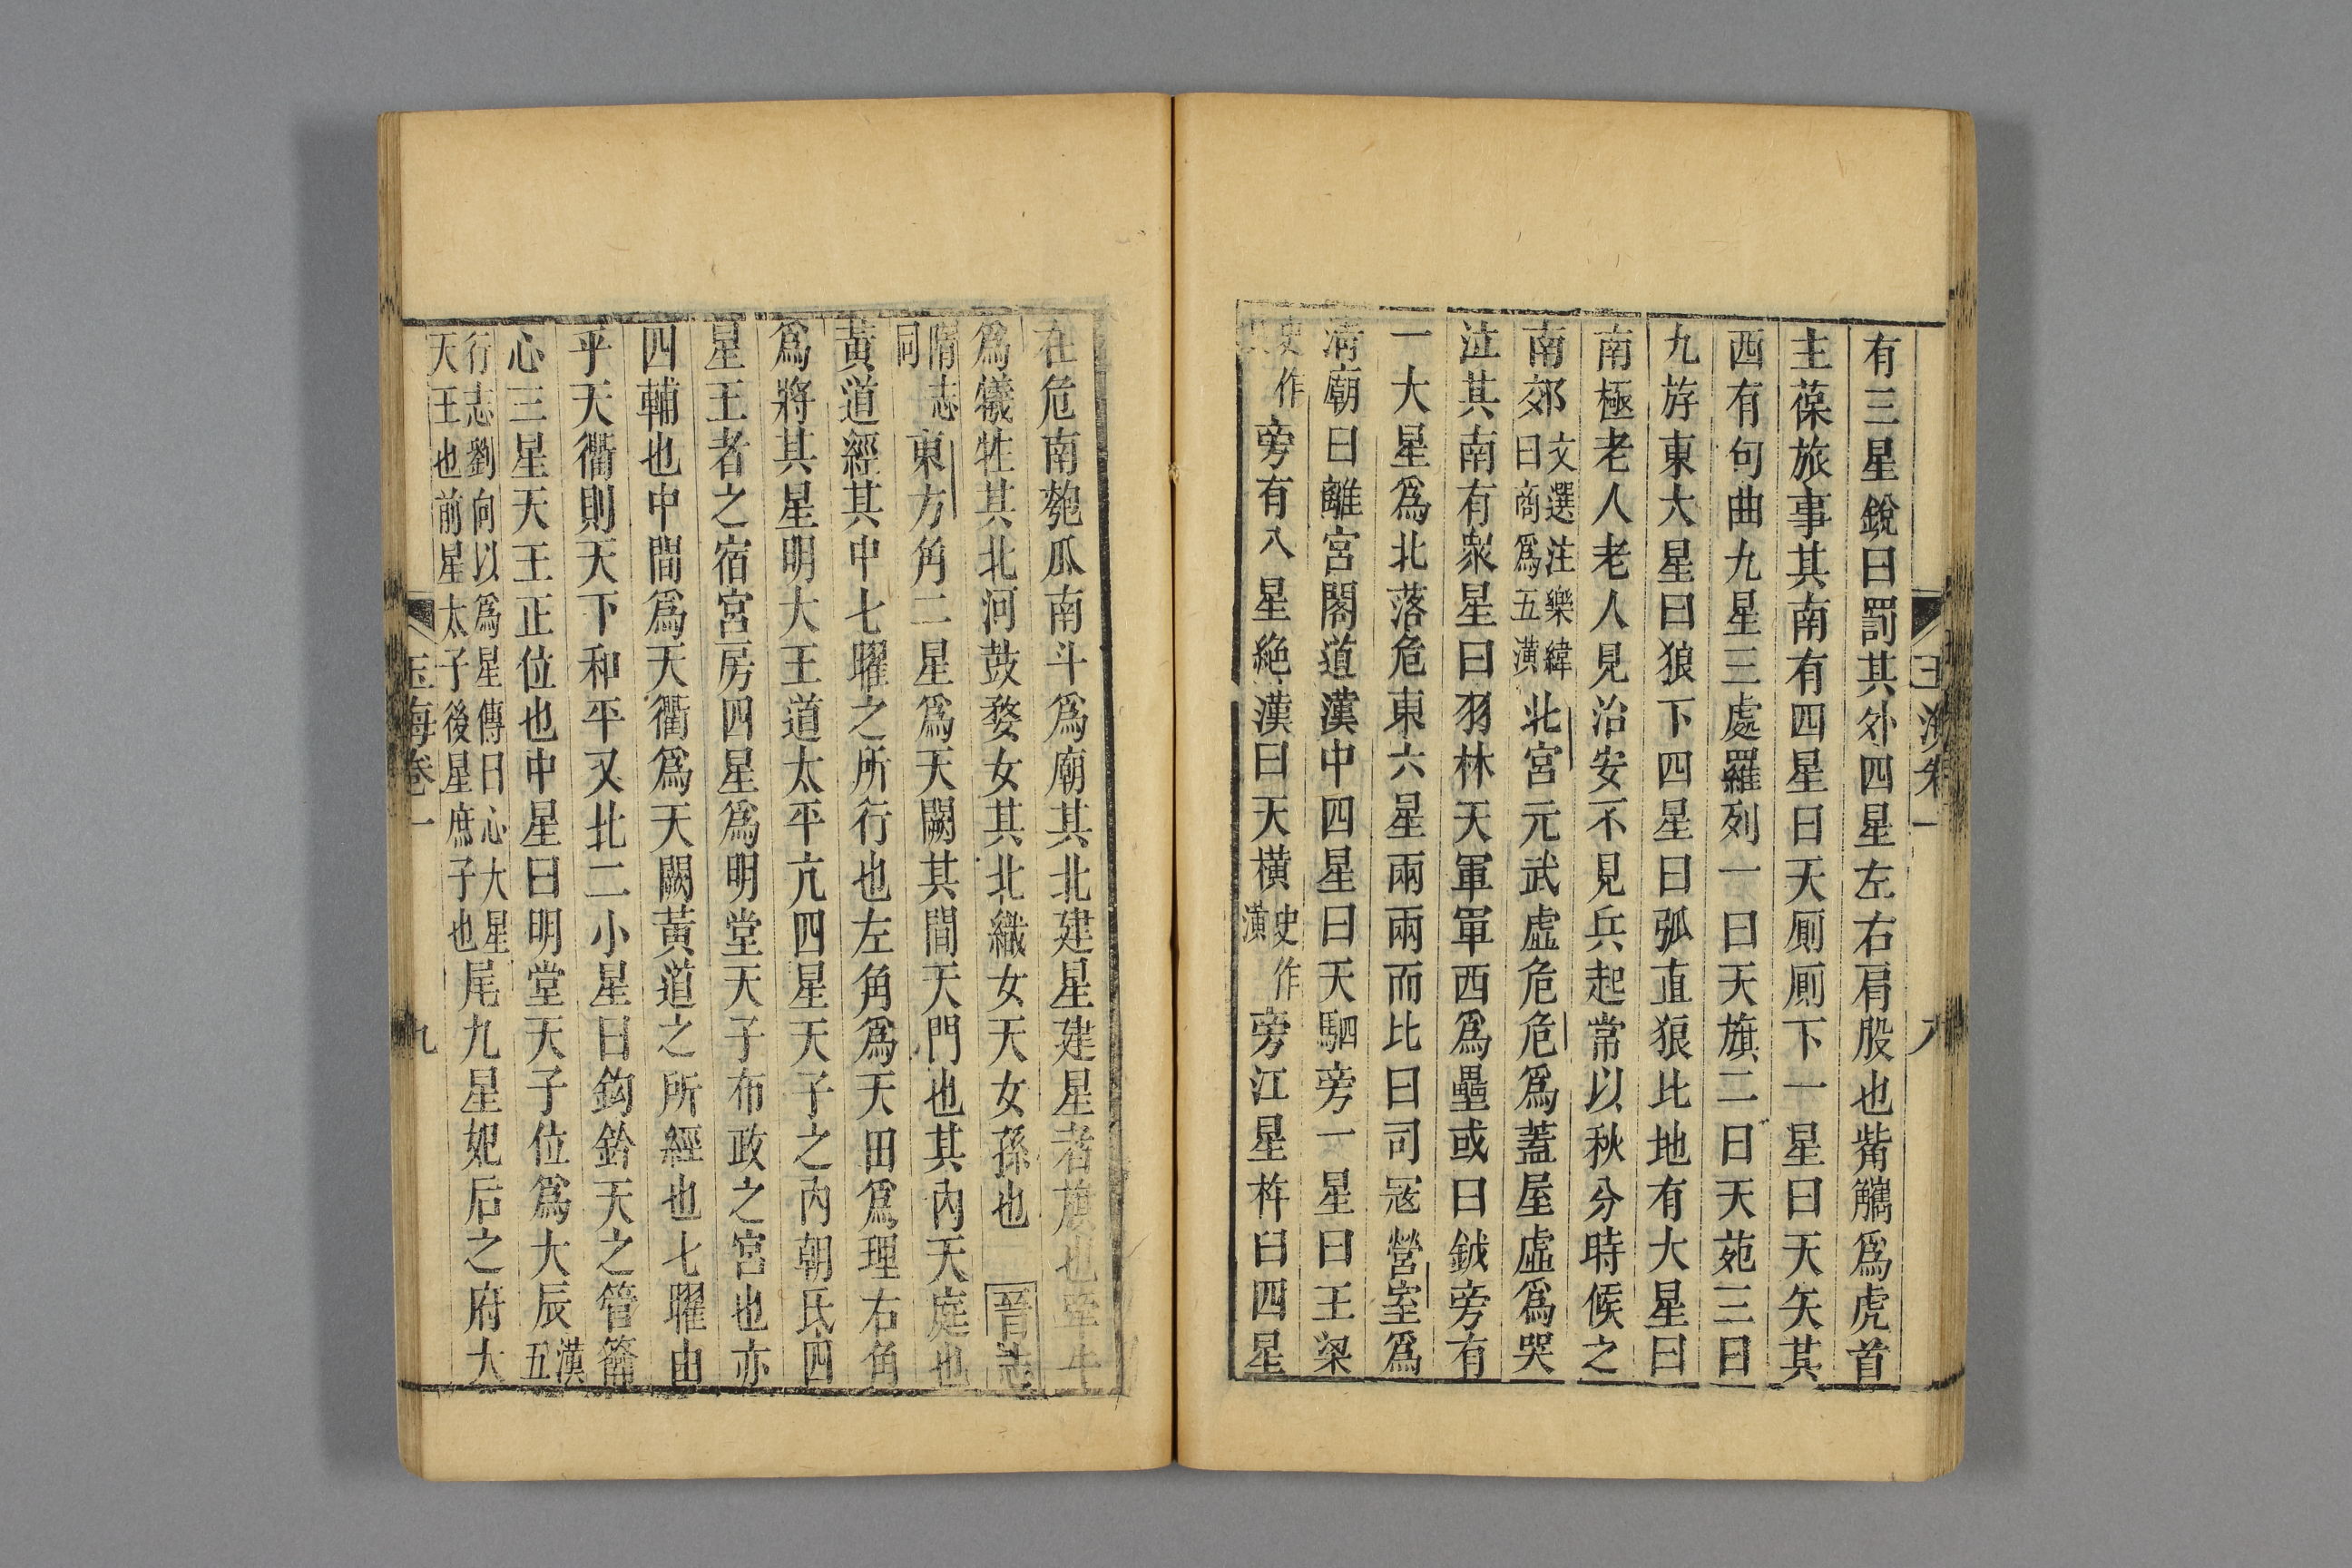 玉海卷一 八
有三星銳曰罰其外四星左右肩股也觜觿爲虎首
主葆旅事其南有四星曰天厠厠下一星曰天矢其
西有句曲九星三處羅列一曰天旗二曰天苑三曰
九斿東大星曰狼下四星曰弧直狼比地有大星曰
南極老人老人見治安不見兵起常以秋分時候之
南郊文選注樂緯曰商爲五潢北宮元武虛危危爲蓋屋虛爲哭
泣其南有衆星曰羽林天軍軍西爲壘或曰鉞旁有
一大星爲北落危東六星兩兩而比曰司寇營室爲
淸廟曰離宮閣道漢中四星曰天駟旁一星曰王梁
史作旁有八星絶漢曰天橫史作潢旁江星杵臼四星
在危南匏瓜南斗爲廟其北建星建星者旗也牽牛
爲犧牲其北河鼓婺女其北織女天女孫也 晉志
隋志同東方角二星爲天關其間天門也其內天庭也
黃道經其中七曜之所行也左角爲天田爲理右角
爲將其星明大王道太平亢四星天子之內朝氐四
星王者之宿宮房四星爲明堂天子布政之宮也亦
四輔也中間爲天衢爲天關黃道之所經也七曜由
乎天衢則天下和平又北二小星曰鈎鈐天之管籥
心三星天王正位也中星曰明堂天子位爲大辰漢五
行志劉向以爲星傳曰心大星天王也前星太子後星庶子也尾九星妃后之府大
玉海卷一 九